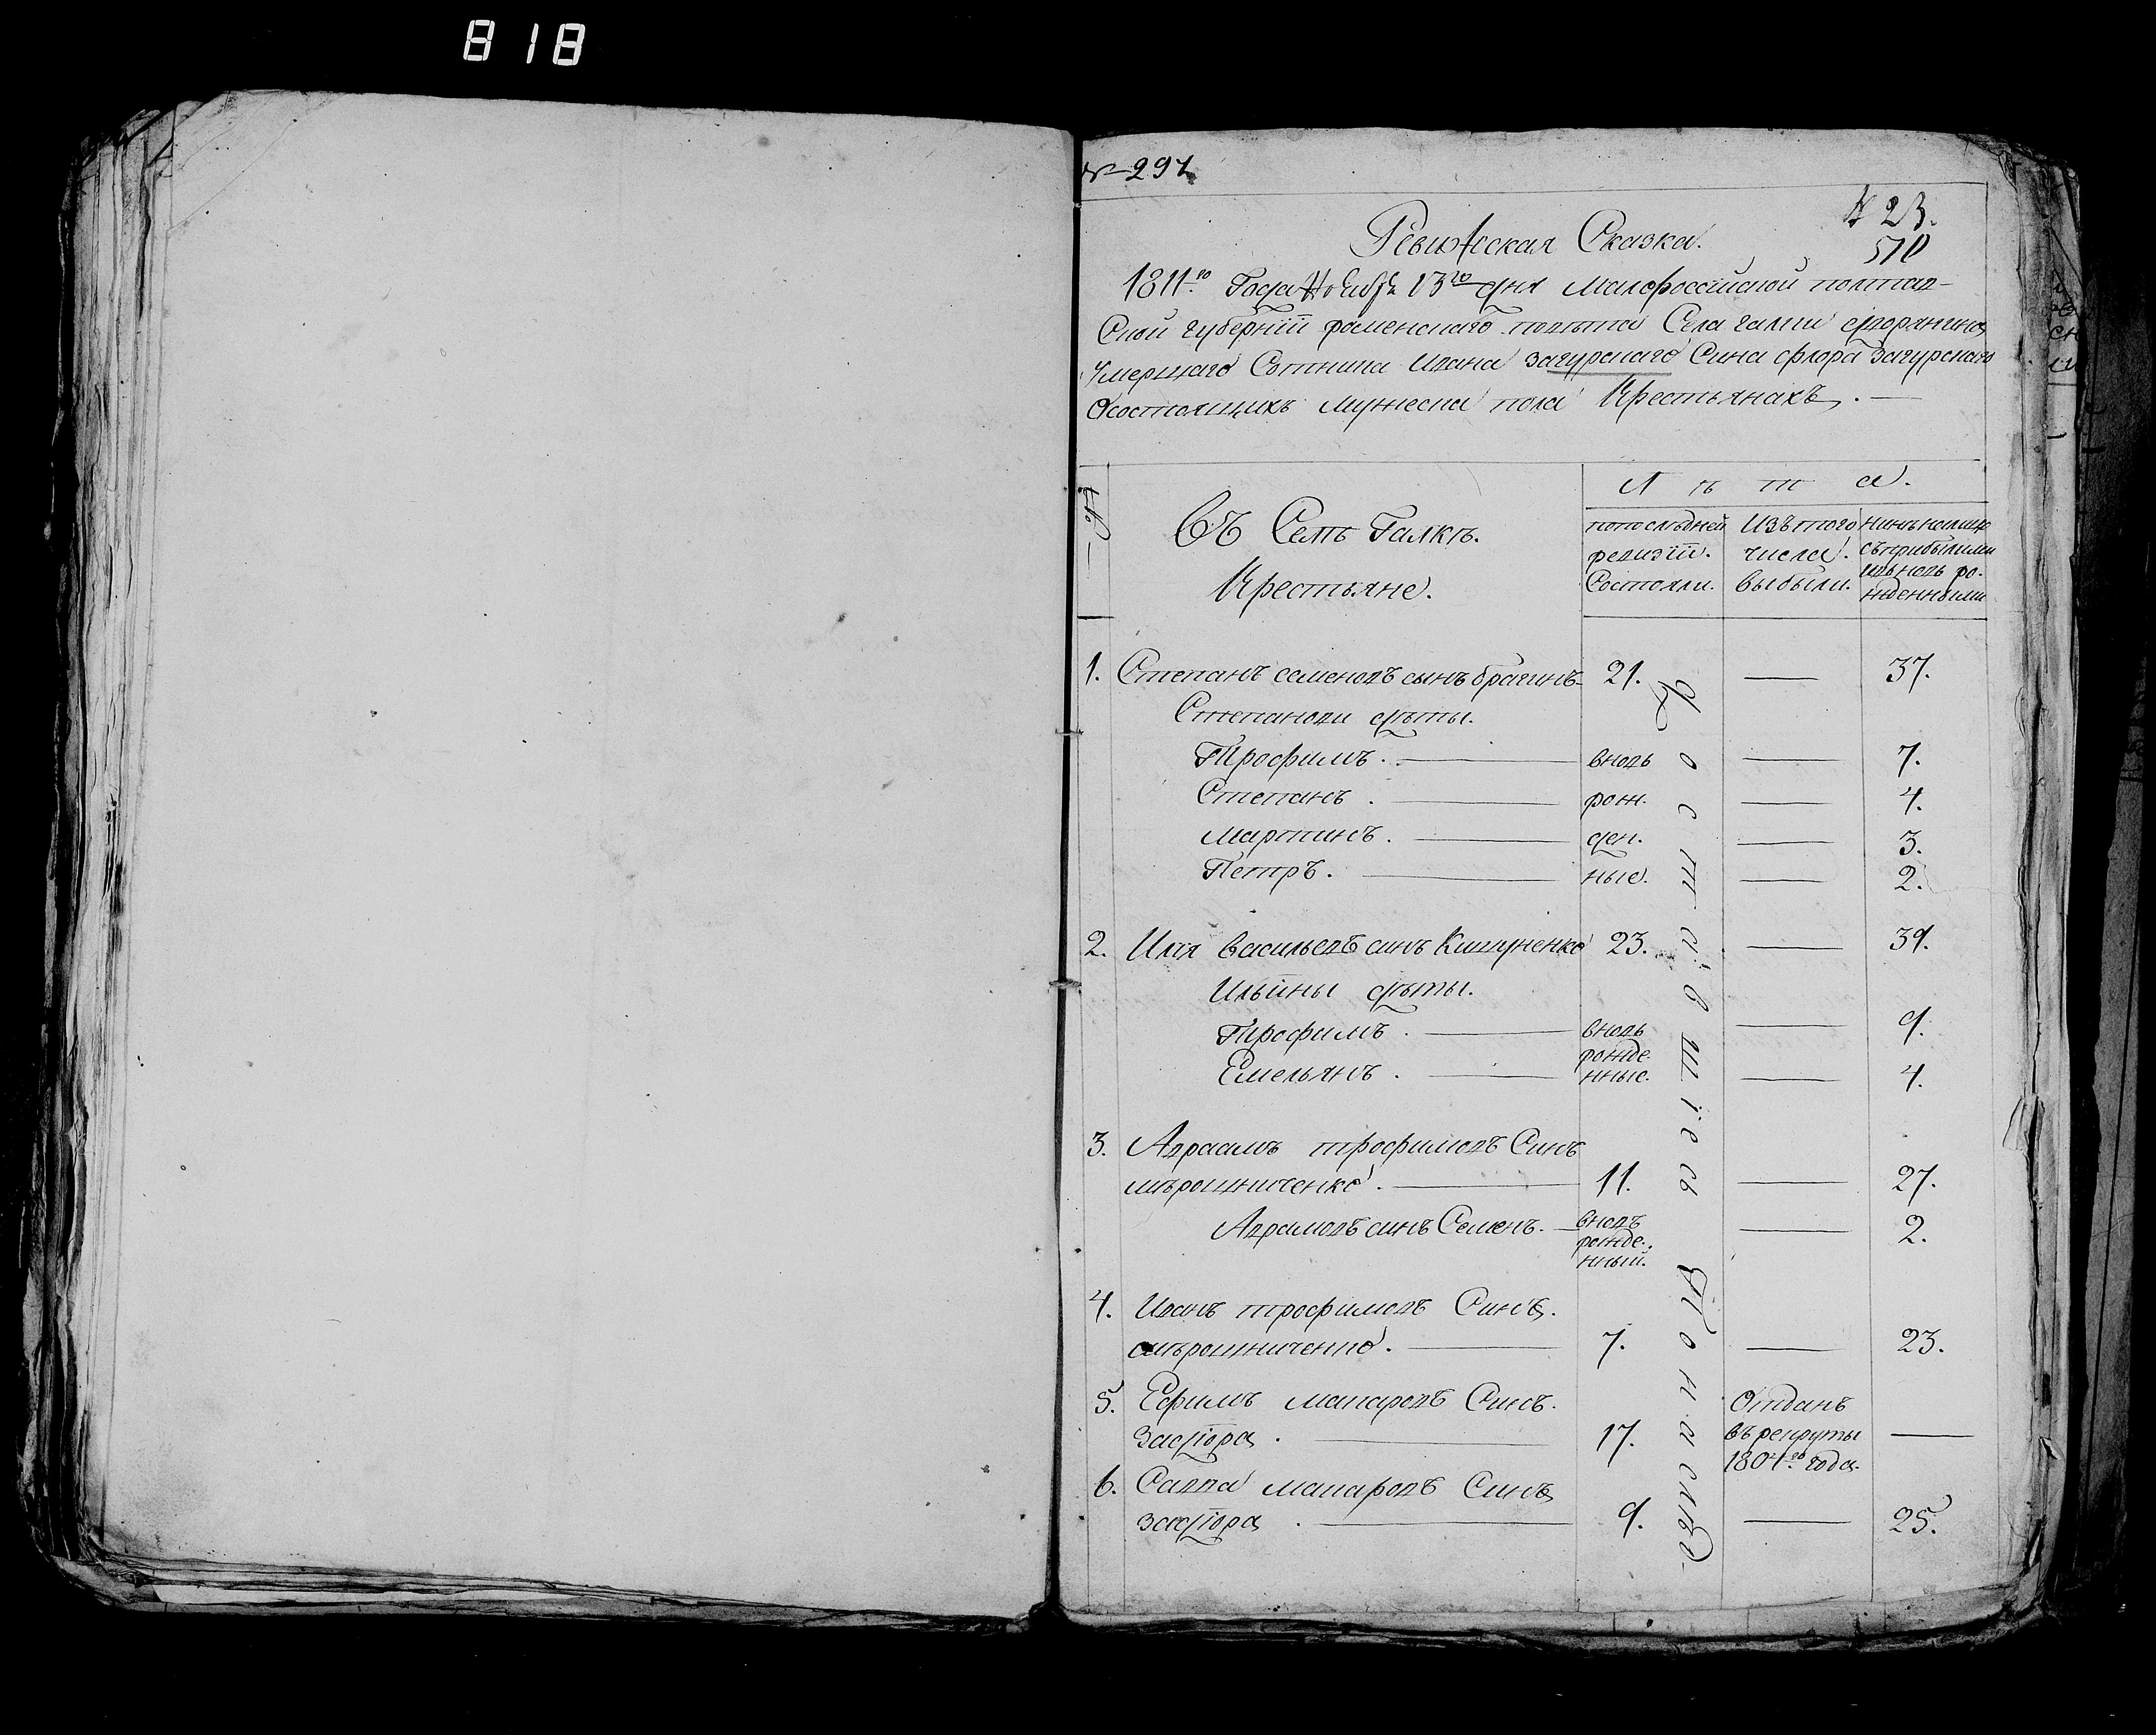 818
№ 291
№ 23.
570
Ревижская Сказка.
1811го Года Ноября 13го дня Малороссийской полтав-
Ской губернїи роменского повѣта Села галки дворанина
умершаго Сотника Ивана загурскаго Сина флора Загурскаго
Осостоящихъ мужеска пола Крестьянахъ. —
№
Въ Селѣ Галкѣ.
Крестьяне.
Л ѣ т а.
попослѣдней ревизїи. Состояли.
Изъ того числа. выбыли.
Нинѣ налицо съприбылими ивновь ро- жденными
1. Степанъ семеновъ сынъ брагинъ 21. — 37.
Степанови дѣты.
Трофимъ. — вновь — 7.
Степанъ. — рож. — 4.
Мартинъ. — ден. — 3.
Петръ. — ные. — 2.
2. Илїя васильевъ синъ 23. — 39.
Ильины дѣты.
Трофимъ. — вновь — 9.
рожде-
Емельянъ. — нные. — 4.
3. Авраамъ трофимовъ Синъ
мѣрошниченко. — 11. — 27.
Аврамовъ синъ Семенъ. — вновь — 2.
рожде-
нный.
4. Иванъ трофимовъ Синъ.
мѣрошниченко. — 7. — 23.
5. Ефимъ макаровъ Синъ. Отданъ
— 17. въ рекруты —
1804го года.
6. Савва макаровъ Синъ
— 9. — 25.